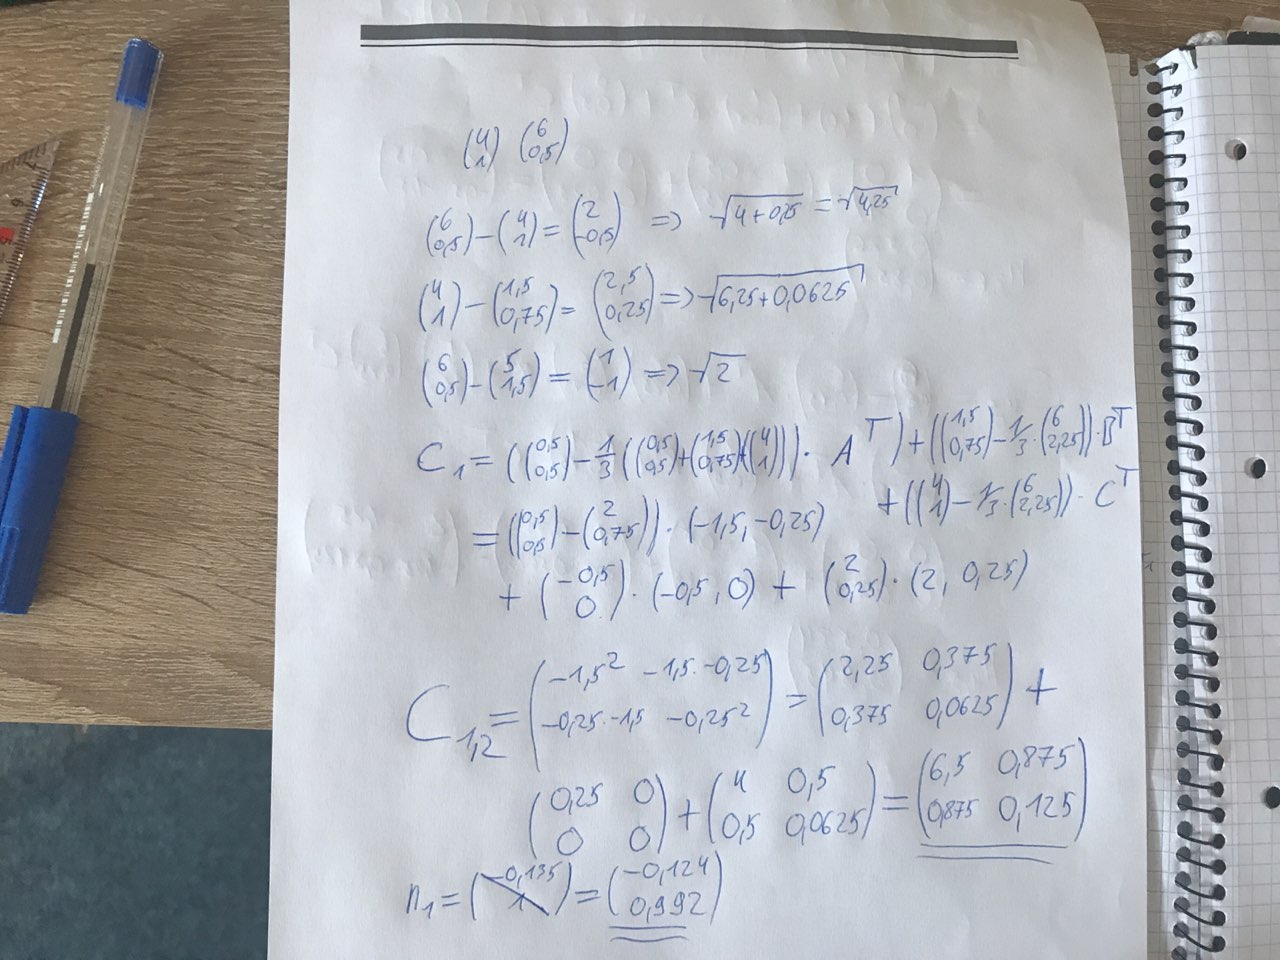 (4 1) (6 0,5)
(6 0,5) - (4 1) = (2 -0,5) => √4+0,25 = √4,25
(4 1) - (1,5 0,75) = (2,5 0,25) => √6,25+0,0625
(6 0,5) - (5 1,5) = (1 -1) => √2
C1 = ((0,5 0,5) - 1/3 ((0,5 0,5) + (1,5 0,75) + (4 1))) · A^T) + ((1,5 0,75) - 1/3 · (6 2,25)) · B^T
+ ((4 1) - 1/3 · (6 2,25)) · C^T
= ((0,5 0,5) - (2 0,75)) · (-1,5, -0,25)
+ (-0,5 0) · (-0,5, 0) + (2 0,25) · (2, 0,25)
C1,2 = (-1,5² -1,5·-0,25 -0,25·-1,5 -0,25²) = (2,25 0,375 0,375 0,0625) +
(0,25 0 0 0) + (4 0,5 0,5 0,0625) = (6,5 0,875 0,875 0,125)
n1 = (-0,135 1) = (-0,124 0,992)